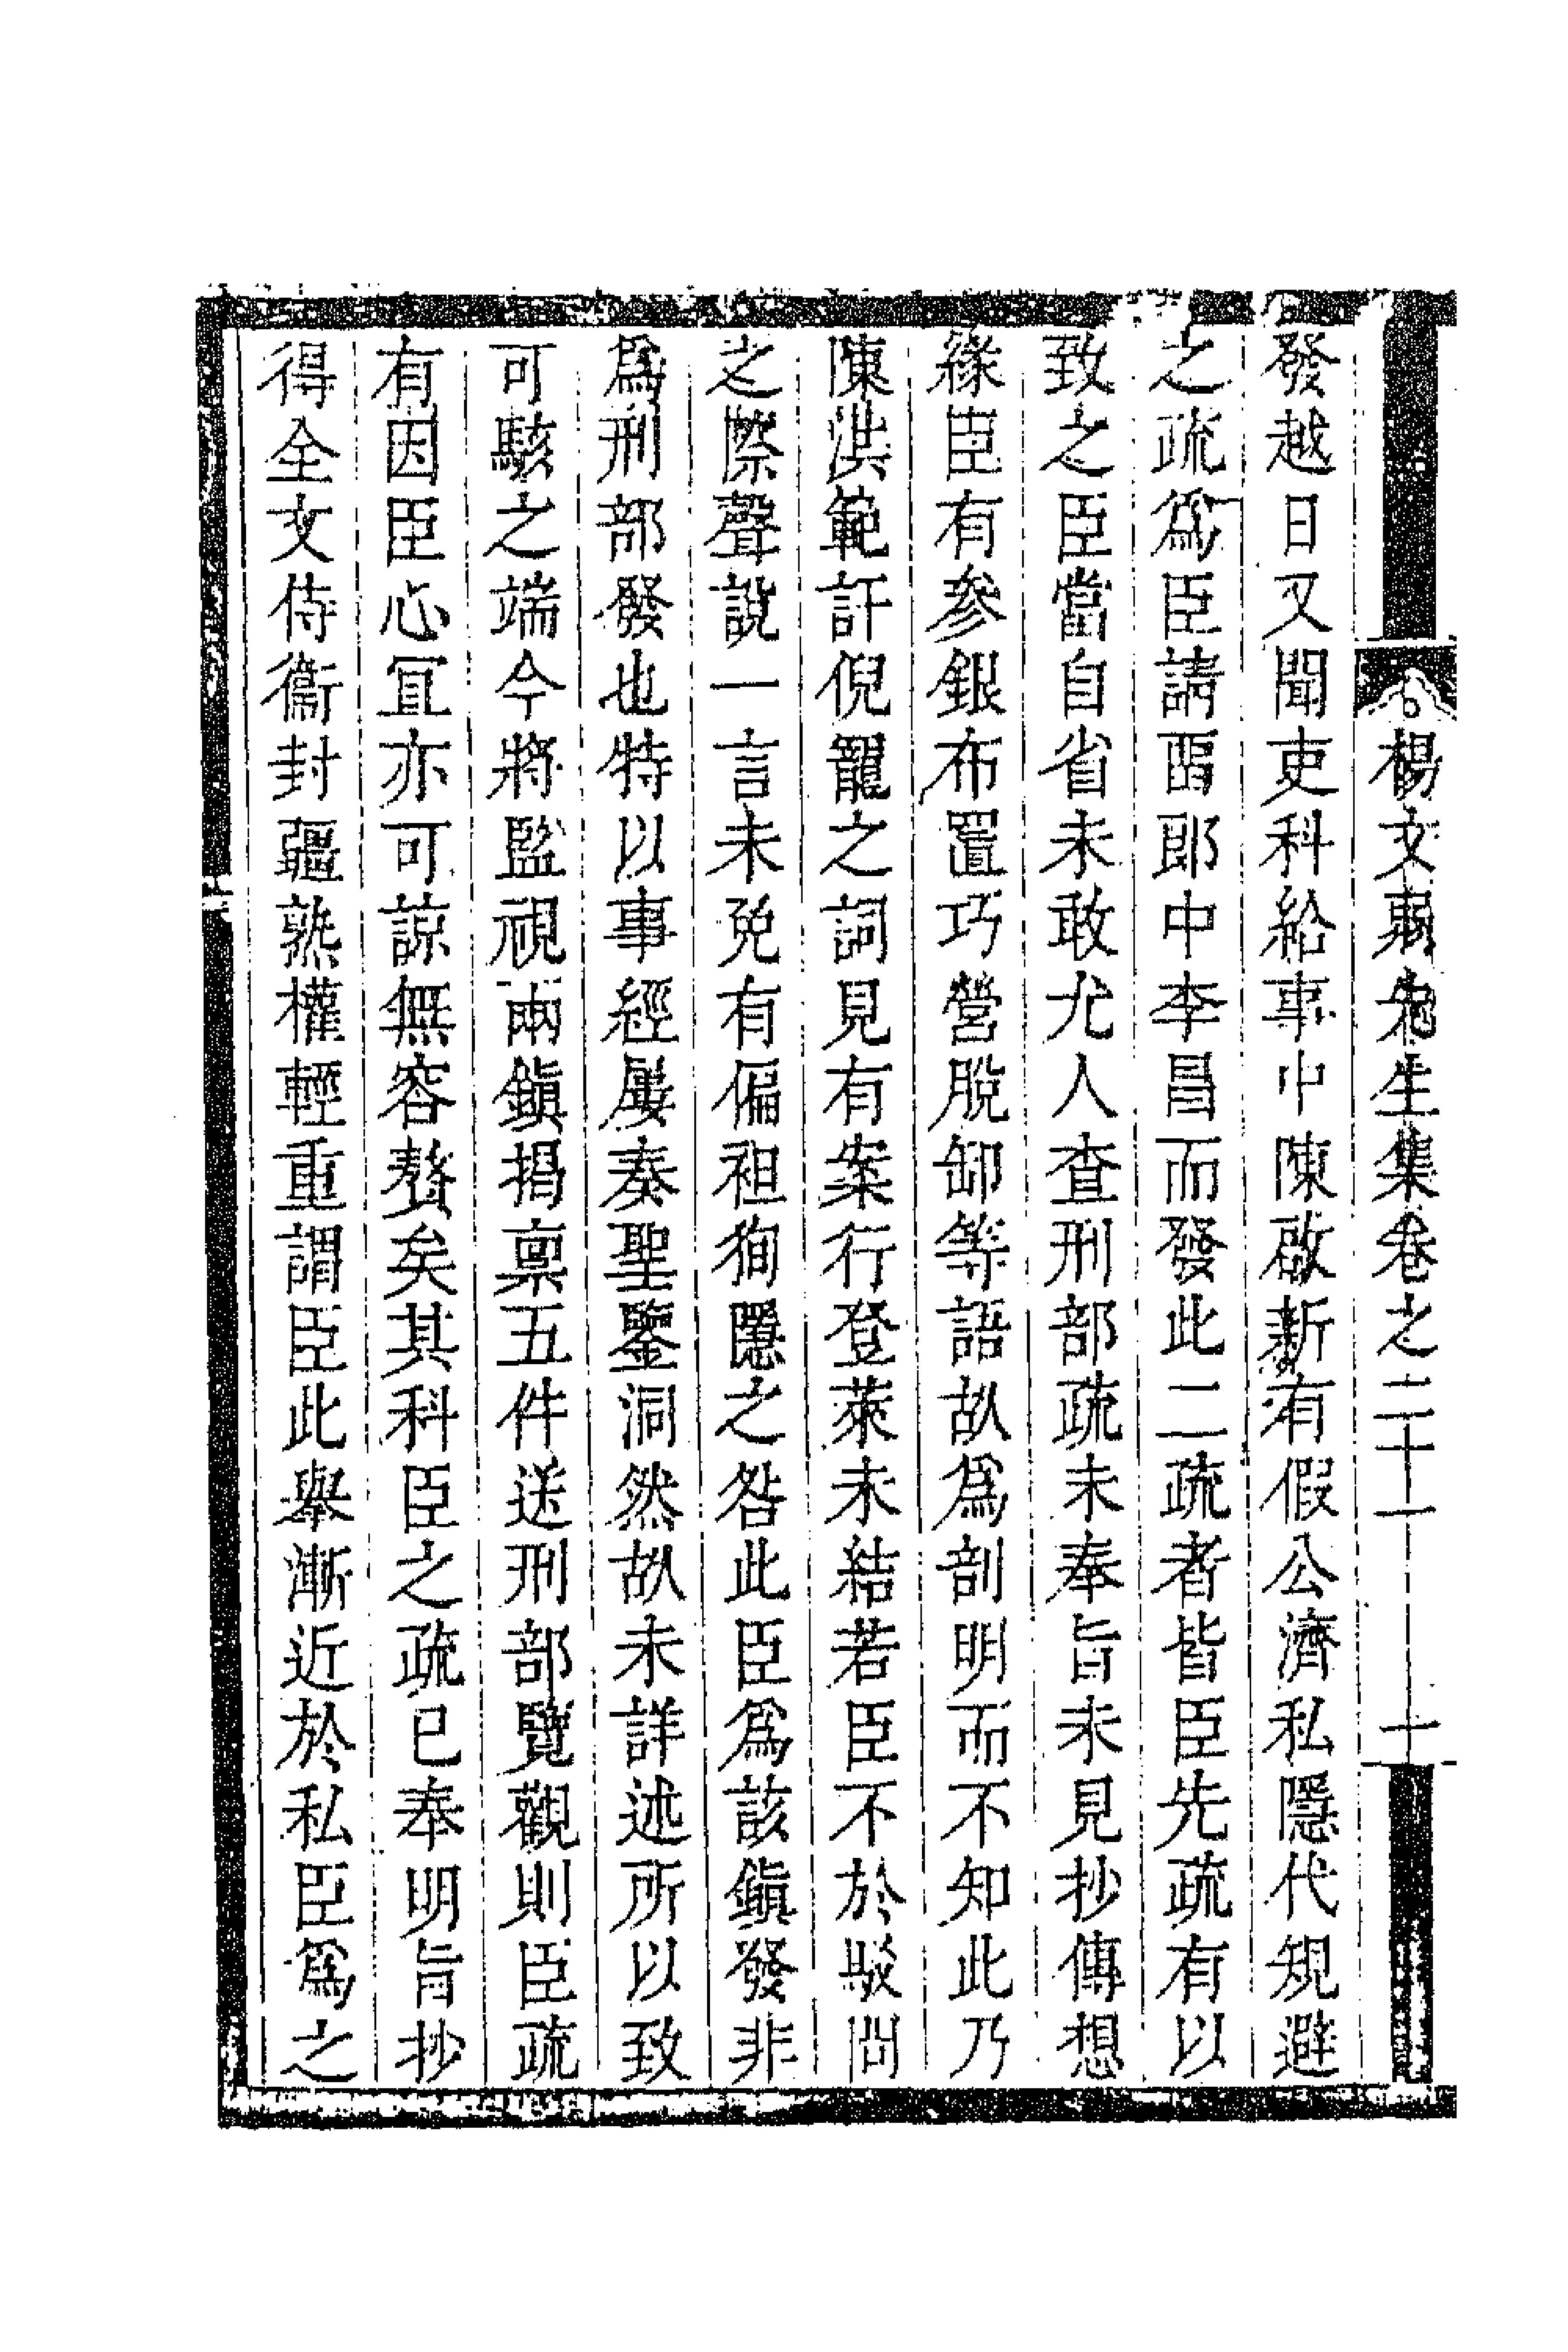 楊文弱先生集卷之二十一 十
發越日又聞吏科給事中陳啟新有假公濟私隱代規避
之疏爲臣請畱郎中李昌而發此二疏者皆臣先疏有以
致之臣當自省未敢尤人查刑部疏未奉旨未見抄傳想
緣臣有參銀布置巧營脫卸等語故爲剖明而不知此乃
陳洪範訐倪寵之詞見有案行登萊未結若臣不於駁問
之際聲說一言未免有偏袒狥隱之咎此臣爲該鎭發非
爲刑部發也特以事經屢奏聖鑒洞然故未詳述所以致
可駭之端今將監視兩鎭揭稟五件送刑部覽觀則臣疏
有因臣心冝亦可諒無容贅矣其科臣之疏已奉明旨抄
得全文侍衞封疆熟權輕重謂臣此舉漸近於私臣爲之